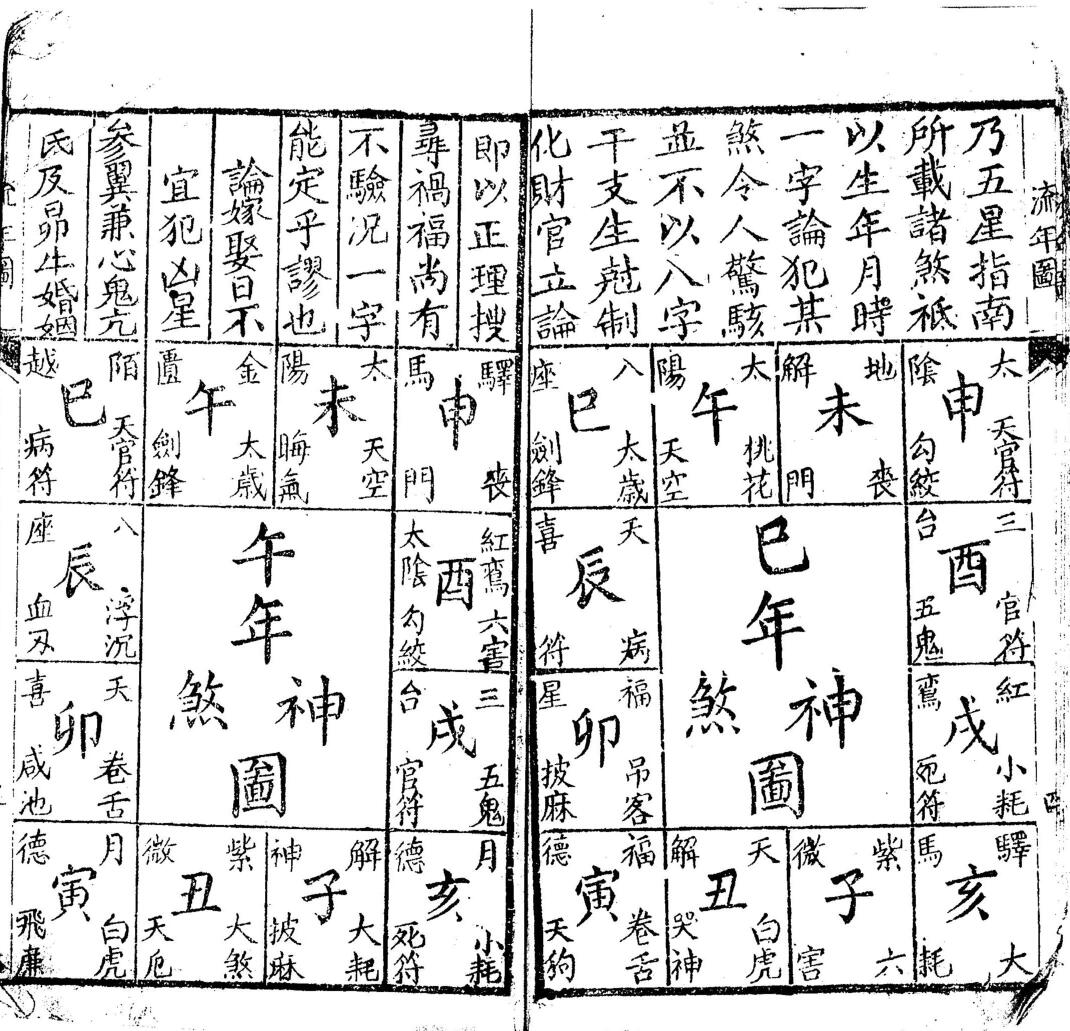 流年圖
乃五星指南
所載諸煞祗
以生年月時
一字論犯某
煞令人驚駭
並不以八字
干支生尅制
化財官立論
太陰 申 天官符 勾絞
地解 未 喪門
太陽 午 桃花 天空
八座 巳 太歲 劍鋒
三台 酉 官符 五鬼
天喜 辰 病符
巳年
神煞
圖
紅鸞 戌 小耗 死符
福星 卯 吊客 披麻
驛馬 亥 大耗
紫微 子 六害
天解 丑 白虎 哭神
福德 寅 卷舌 天狗
四
即以正理搜
尋禍福尚有
不驗況一字
能定乎謬也
論嫁娶日不
宜犯凶星
參翼兼心鬼亢
氐及昴牛婚姻
驛馬 申 喪門
太陽 未 天空 晦氣
金匱 午 太歲 劍鋒
陌越 巳 天官符 病符
紅鸞 六害 酉 太陰 勾絞
八座 辰 浮沉 血刃
午年
神煞
圖
三台 戌 五鬼 官符
天喜 卯 卷舌 咸池
月德 亥 小耗 死符
解神 子 大耗 披麻
紫微 丑 大煞 天厄
月德 寅 白虎 飛廉